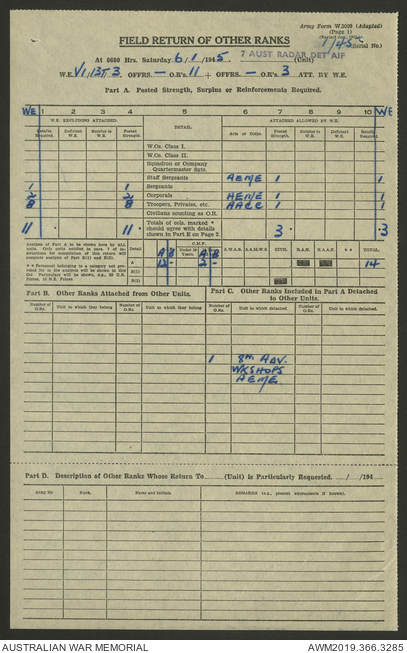 Army Form W.3009 (Adapted)
(Page 1)
1/45 (Serial No.)
FIELD RETURN OF OTHER RANKS
At 0600 Hrs. Saturday 6/1/1945. 7 AUST RADAR DET AIF (Unit)
W.E. VI/137T 3 OFFRS. — O.R's. 11 + OFFRS. — O.R's. 3 ATT. BY W.E.
Part A. Posted Strength, Surplus or Reinforcements Required.
WE 1 2 3 4 5 6 7 8 9 10 WE
W.E. EXCLUDING ATTACHED. DETAIL. ATTACHED ALLOWED BY W.E.
Details Required. Deficient W.E. Surplus to W.E. Posted Strength. Arms or Corps. Posted Strength. Surplus to W.E. Deficient W.E. Details Required.
W.Os. Class I.
W.Os. Class II.
Squadron or Company Quartermaster Sgts.
Staff Sergeants AEME 1 1
1 1 Sergeants
2 2 Corporals AEME 1 1
8 8 Troopers, Privates, etc. AACC 1 1
Civilians counting as O.R.
11 11 * Totals of cols. marked * should agree with details shown in Part E on Page 2. 3 * 3
Analysis of Part A to be shown here by ALL units.
Detail C.M.F. Under 19 Years. A.W.A.S. A.A.M.W.S. CIVIL R.A.N. R.A.A.F. * * TOTAL.
A B A B
A 12 - 2 - 14
B(1)
B(2)
Part B. Other Ranks Attached from Other Units. Part C. Other Ranks Included in Part A Detached to Other Units.
Number of O.Rs. Unit to which they belong Number of O.Rs. Unit to which they belong Number of O.Rs. Unit to which detached. Number of O.Rs. Unit to which detached.
1 8th ADV.
WKSHOPS
AEME
Part D. Description of Other Ranks Whose Return To (Unit) is Particularly Requested. / /194
Army No Rank. Name and Initials. REMARKS (e.g., present whereabouts if known).
AUSTRALIAN WAR MEMORIAL AWM2019.366.3285